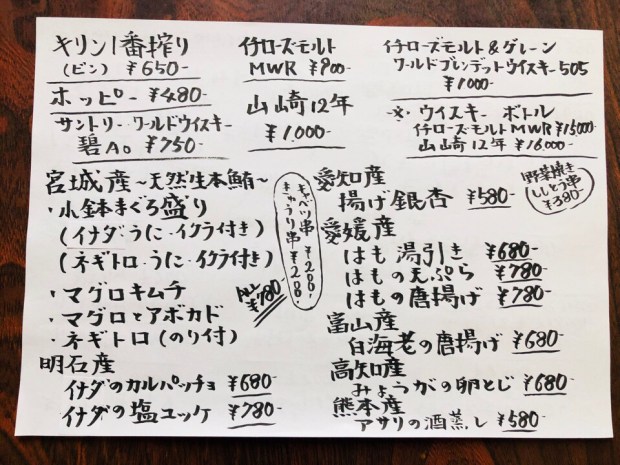 キリン一番搾り
(ビン) ¥650-
ホッピー ¥480-
サントリーワールドウイスキー
碧Ao ¥750-
イチローズモルト
MWR ¥900-
山崎12年
¥1,000-
イチローズモルト&グレーン
ワールドブレンデットウイスキー505
¥1000-
・ウイスキー ボトル
イチローズ・モルト MWR ¥15000
山崎12年 ¥16,000-
宮城産~天然生本鮪~
・小鉢まぐろ盛り
(イナダ・うに・イクラ付き)
(ネギトロ・うに・イクラ付き)
・マグロキムチ
・マグロとアボカド
・ネギトロ(のり付)
ALL
¥780-
キャベツ串 ¥200-
きゅうり串 ¥200-
明石産
イナダのカルパッチョ ¥680-
イナダの塩ユッケ ¥780-
愛知産
揚げ銀杏 ¥580-
野菜焼き
ししとう串
¥380-
愛媛産
はも湯引き ¥680-
はもの天ぷら ¥780-
はもの唐揚げ ¥780-
富山産
白海老の唐揚げ ¥680-
高知産
みょうがの卵とじ ¥680-
熊本産
アサリの酒蒸し ¥580-